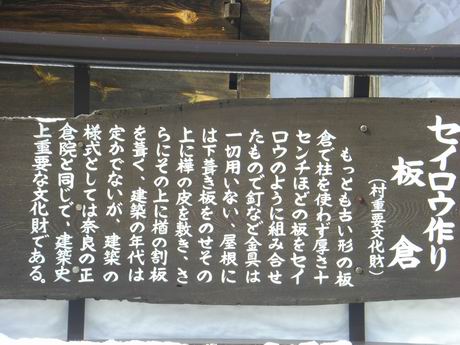 セイロウ作り
板倉
(村重要文化財)
もっとも古い形の板
倉で柱を使わず厚さ十
センチほどの板をセイ
ロウのように組み合せ
たもので釘など金具は
一切用いない、屋根に
は下葺き板をのせその
上に樺の皮を敷き、さ
らにその上に楢の割板
を葺く、建築の年代は
定かでないが、建築の
様式としては奈良の正
倉院と同じで、建築史
上重要な文化財である。